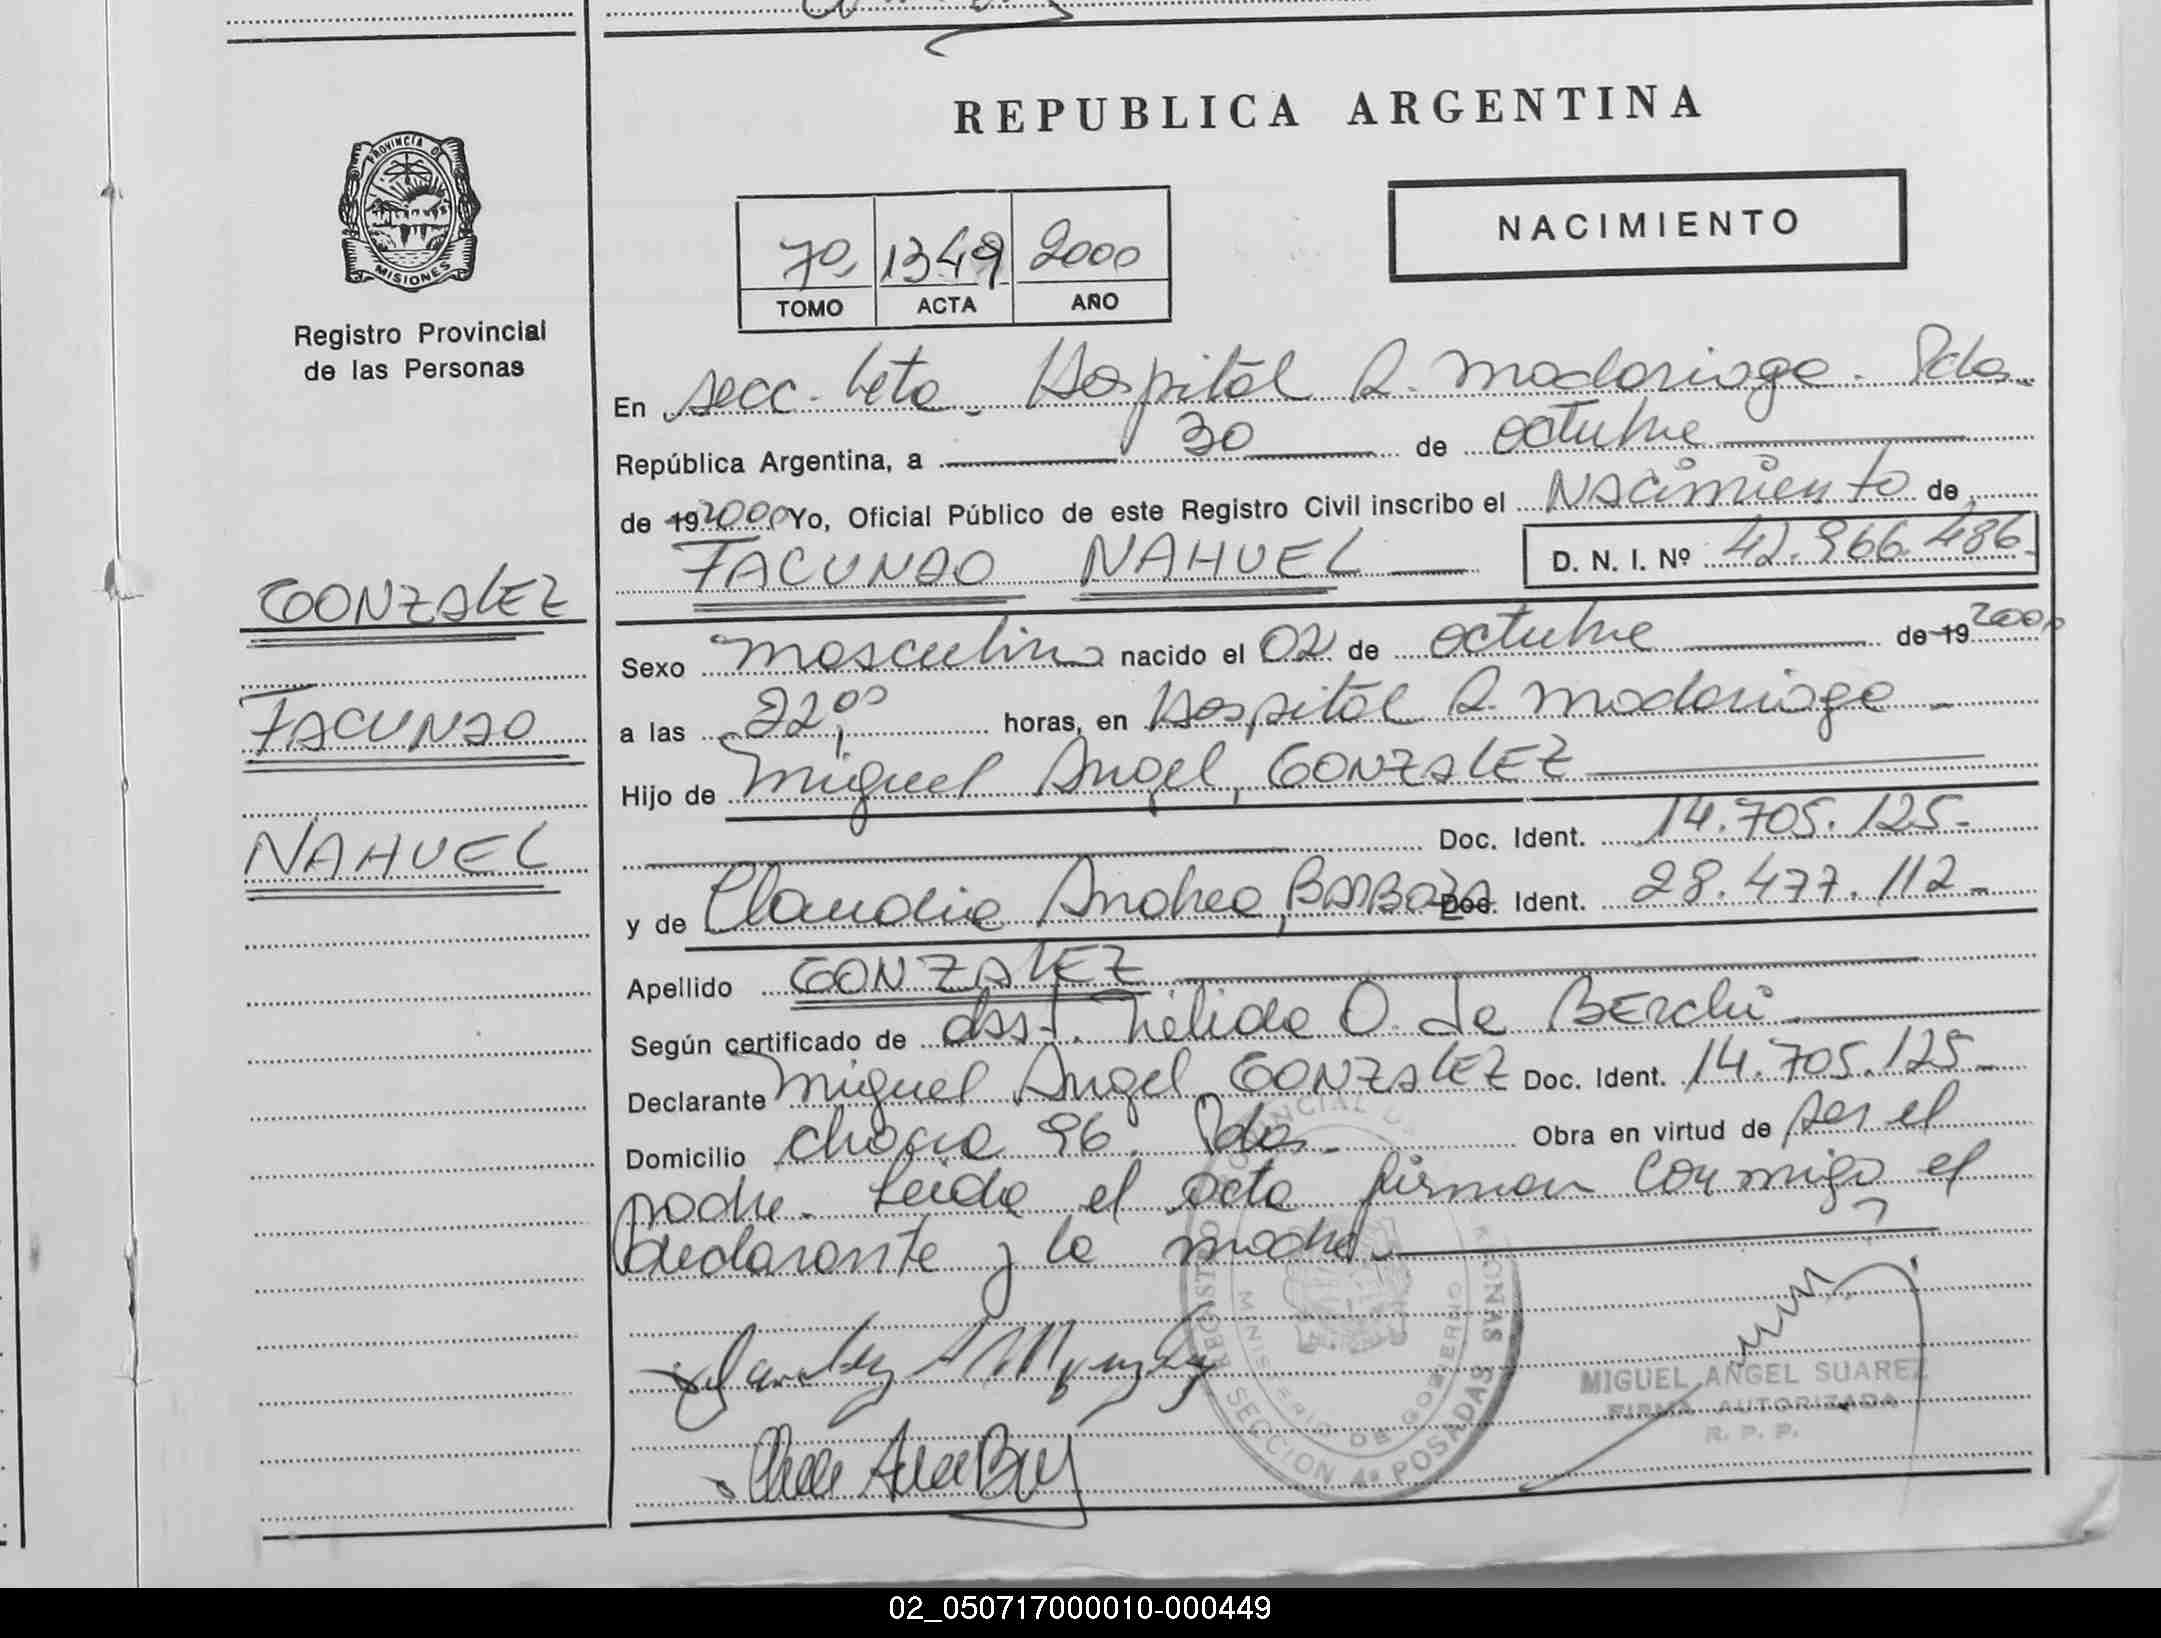 REPUBLICA ARGENTINA
PROVINCIA DE
MISIONES
Registro Provincial
de las Personas
NACIMIENTO
70 1349 2000
TOMO ACTA AÑO
En secc. 4ta. Hospital R. Madariaga. Pdas.
República Argentina, a 30 de octubre
de 19 2000 Yo, Oficial Público de este Registro Civil inscribo el Nacimiento de
FACUNDO NAHUEL D. N. I. Nº 42.966.486
GONZALEZ
FACUNDO
NAHUEL
Sexo masculino nacido el 02 de octubre de 19 2000
a las 22,00 horas, en Hospital R. Madariaga -
Hijo de Miguel Angel, GONZALEZ
Doc. Ident. 14.705.125-
y de Claudia Andrea, BARBOZA Doc. Ident. 28.477.112-
Apellido GONZALEZ
Según certificado de Obst. Nelida O. de BErchi
Declarante Miguel Angel GONZALEZ Doc. Ident. 14.705.125-
Domicilio chacra 96. Pdas. Obra en virtud de ser el
padre. Leida el acta firman conmigo el
declarante y la madre.
REGISTRO PROVINCIAL DE PERSONAS
MINISTERIO DE GOBIERNO
SECCION 4ª POSADAS
MIGUEL ANGEL SUAREZ
FIRMA AUTORIZADA
R. P. P.
02_050717000010-000449